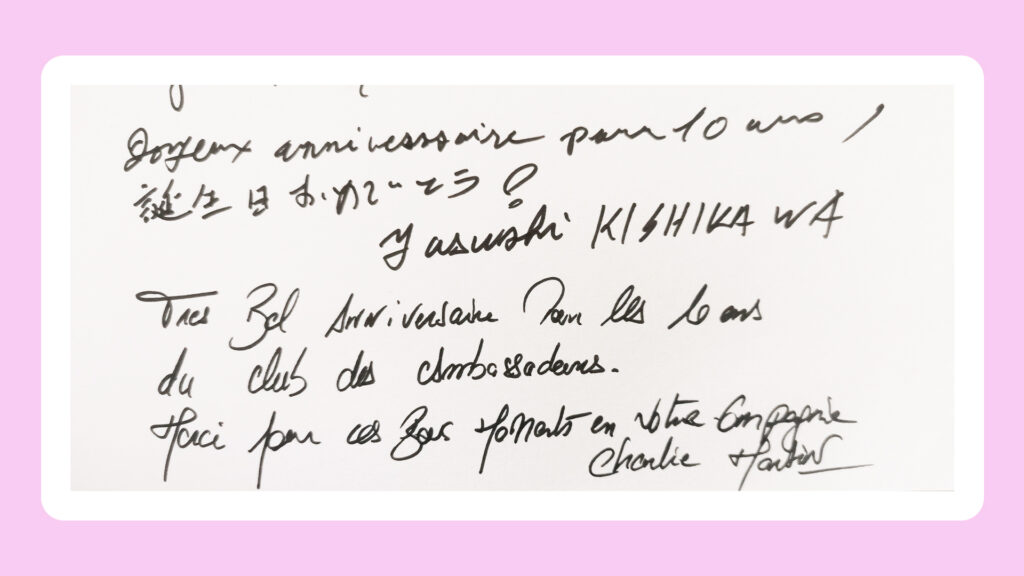 Joyeux anniverssaire pour 10 ans !
誕生日おめでとう?
Yasushi KISHIKAWA
Tres Bel Anniversaire Pour les 10 ans
du club des Ambassadeurs.
Merci pour ces Bons Moments en votre Compagnie
Charlie Martin